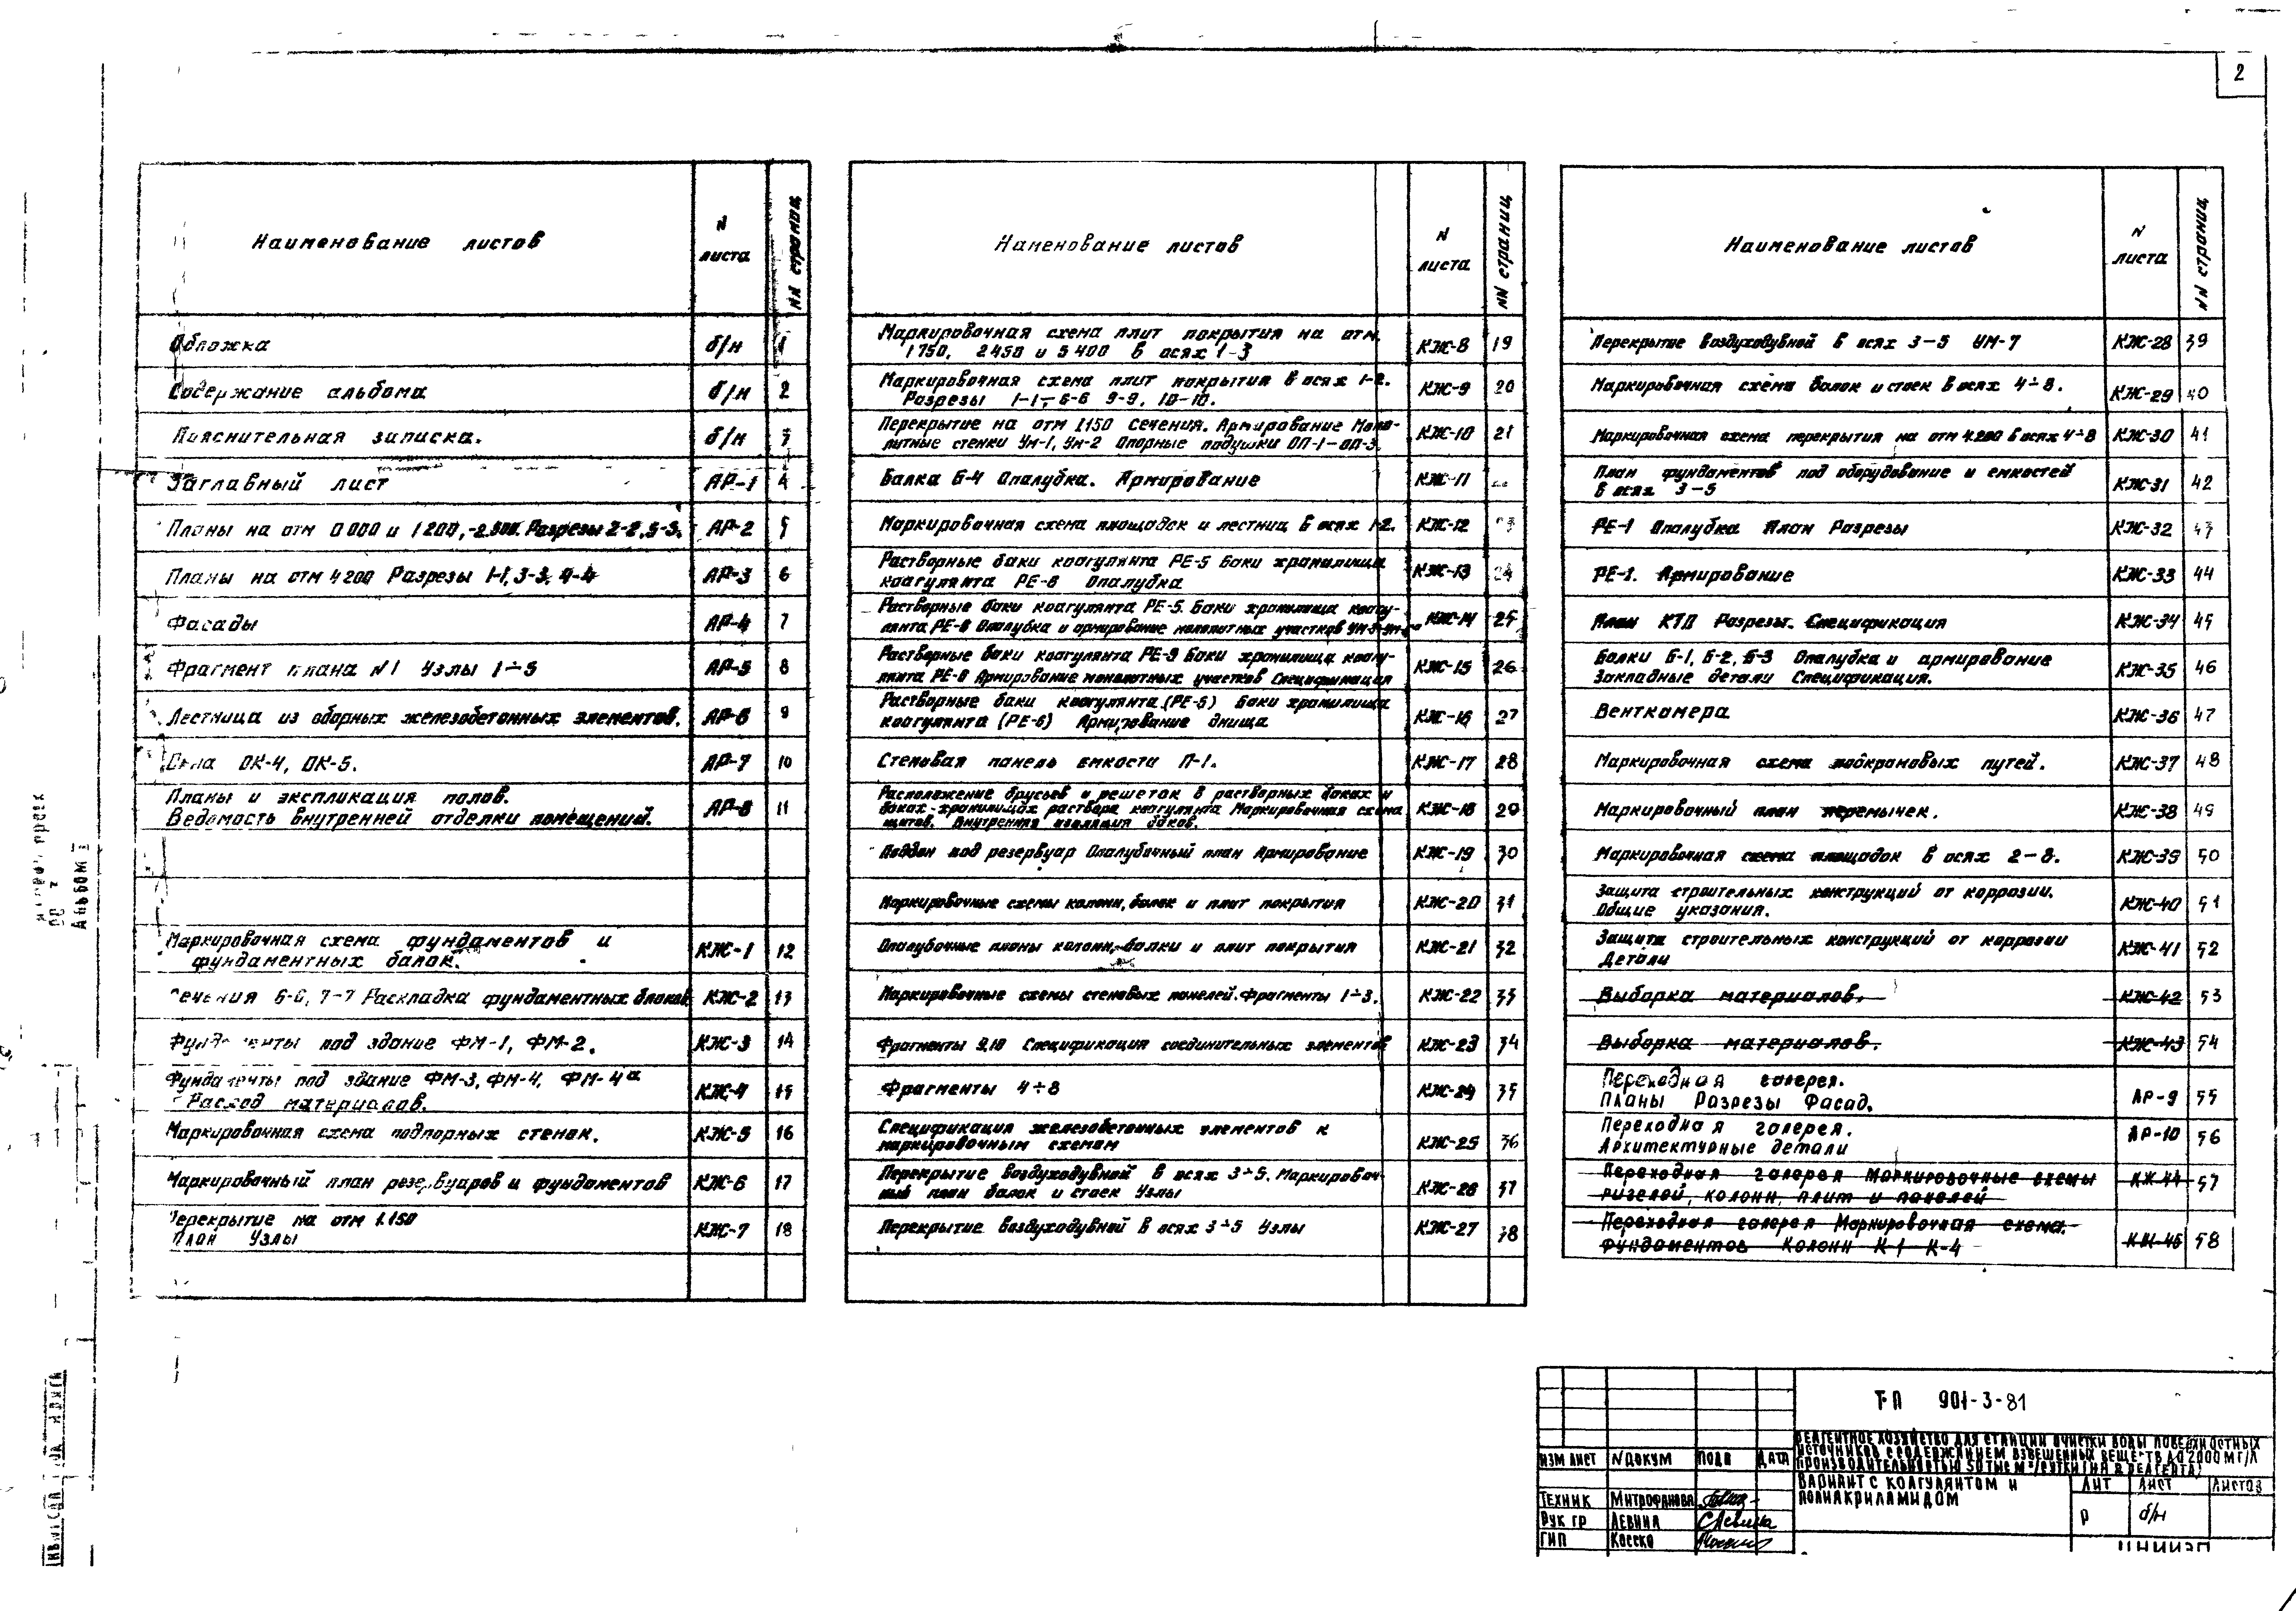 2
Наименование листов
N листа
NN страниц
Обложка б/н 1
Содержание альбома б/н 2
Пояснительная записка. б/н 3
Заглавный лист АР-1 4
Планы на отм 0 000 и 1 200, Разрезы 2-2, 5-5. АР-2 5
Планы на отм 4 200 Разрезы 1-1, 3-3, 4-4 АР-3 6
Фасады АР-4 7
Фрагмент плана N1 Узлы 1÷5 АР-5 8
Лестница из сборных железобетонных элементов. АР-6 9
Окна ОК-4, ОК-5. АР-7 10
Планы и экспликация полов.
Ведомость внутренней отделки помещений. АР-8 11
Маркировочная схема фундаментов и
фундаментных балок. КЖ-1 12
Сечения 6-6, 7-7 Раскладка фундаментных блоков КЖ-2 13
Фундаменты под здание ФМ-1, ФМ-2. КЖ-3 14
Фундаменты под здание ФМ-3, ФМ-4, ФМ-4а
Расход материалов. КЖ-4 15
Маркировочная схема подпорных стенок. КЖ-5 16
Маркировочный план резервуаров и фундаментов КЖ-6 17
Перекрытие на отм 1.150
План Узлы КЖ-7 18
Наменование листов
N листа
NN страниц
Маркировочная схема плит покрытия на отм.
1 750, 2 450 и 5 400 в осях 1-3 КЖ-8 19
Маркировочная схема плит покрытия в осях 1-2.
Разрезы 1-1÷6-6 9-9, 10-10. КЖ-9 20
Перекрытие на отм 1.150 сечения. Армирование Моно-
литные стенки Ум-1, Ум-2 Опорные подушки ОП-1-ОП-3. КЖ-10 21
Балка Б-4 Опалубка. Армирование КЖ-11
Маркировочная схема площадок и лестниц в осях 1-2. КЖ-12
Растворные баки коагулянта РЕ-5 Баки хранилища
коагулянта РЕ-6 Опалубка КЖ-13 24
Растворные баки коагулянта РЕ-5. Баки хранилища коагу-
лянта РЕ-6 Опалубка и армирование монолитных участков КЖ-14 25
Растворные баки коагулянта РЕ-5 Баки хранилища коагу-
лянта РЕ-6 Армирование монолитных участков Спецификация КЖ-15 26
Растворные баки коагулянта (РЕ-5) Баки хранилища
коагулянта (РЕ-6) Армирование днища КЖ-16 27
Стеновая панель емкости П-1. КЖ-17 28
Расположение брусьев и решеток в растворных баках и
баках-хранилищах раствора коагулянта Маркировочная схема
щитов. Внутренняя изоляция баков. КЖ-18 29
Поддон под резервуар Опалубочный план Армирование КЖ-19 30
Маркировочные схемы колонн, балок и плит покрытия КЖ-20 31
Опалубочные планы колонн, балки и плит покрытия КЖ-21 32
Маркировочные схемы стеновых панелей. Фрагменты 1÷3. КЖ-22 33
Фрагменты 9,10 Спецификация соединительных элементов КЖ-23 34
Фрагменты 4÷8 КЖ-24 35
Спецификация железобетонных элементов к
маркировочным схемам КЖ-25 36
Перекрытие воздуходувной в осях 3÷5. Маркировоч-
ный план балок и стоек Узлы КЖ-26 37
Перекрытие воздуходувной в осях 3÷5 Узлы КЖ-27 38
Наименование листов
N листа
NN страниц
Перекрытие воздуходувной в осях 3-5 УМ-7 КЖ-28 39
Маркировочная схема балок и стоек в осях 4÷8. КЖ-29 40
Маркировочная схема перекрытия на отм 4.200 в осях 4÷8 КЖ-30 41
План фундаментов под оборудование и емкостей
в осях 3-5 КЖ-31 42
РЕ-1 Опалубка План Разрезы КЖ-32 43
РЕ-1. Армирование КЖ-33 44
План КТП Разрезы. Спецификация КЖ-34 45
Балки Б-1, Б-2, Б-3 Опалубка и армирование
Закладные детали Спецификация. КЖ-35 46
Венткамера КЖ-36 47
Маркировочная схема подкрановых путей. КЖ-37 48
Маркировочный план перемычек. КЖ-38 49
Маркировочная схема площадок в осях 2-8. КЖ-39 50
Защита строительных конструкций от коррозии.
Общие указания. КЖ-40 51
Защита строительных конструкций от коррозии
Детали КЖ-41 52
Выборка материалов. КЖ-42 53
Выборка материалов. КЖ-43 54
Переходная галерея.
Планы Разрезы Фасад. АР-9 55
Переходная галерея.
Архитектурные детали АР-10 56
Переходная галерея Маркировочные схемы
ригелей, колонн, плит и панелей КЖ-44 57
Переходная галерея Маркировочная схема.
фундаментов Колонн К-1 К-4 КЖ-45 58
Альбом I
ТП 901-3-81
Реагентное хозяйство для станции очистки воды поверхностных
источников с содержанием взвешенных веществ до 2000 мг/л
производительностью 50 тыс м³/сутки (на 2 реагента)
Вариант с коагулянтом и
полиакриламидом
Изм Лист N докум Подп Дата
Техник Митрофанова
Рук гр Левина
ГИП Косско
Лит Лист Листов
Р б/н
ЦНИИЭП